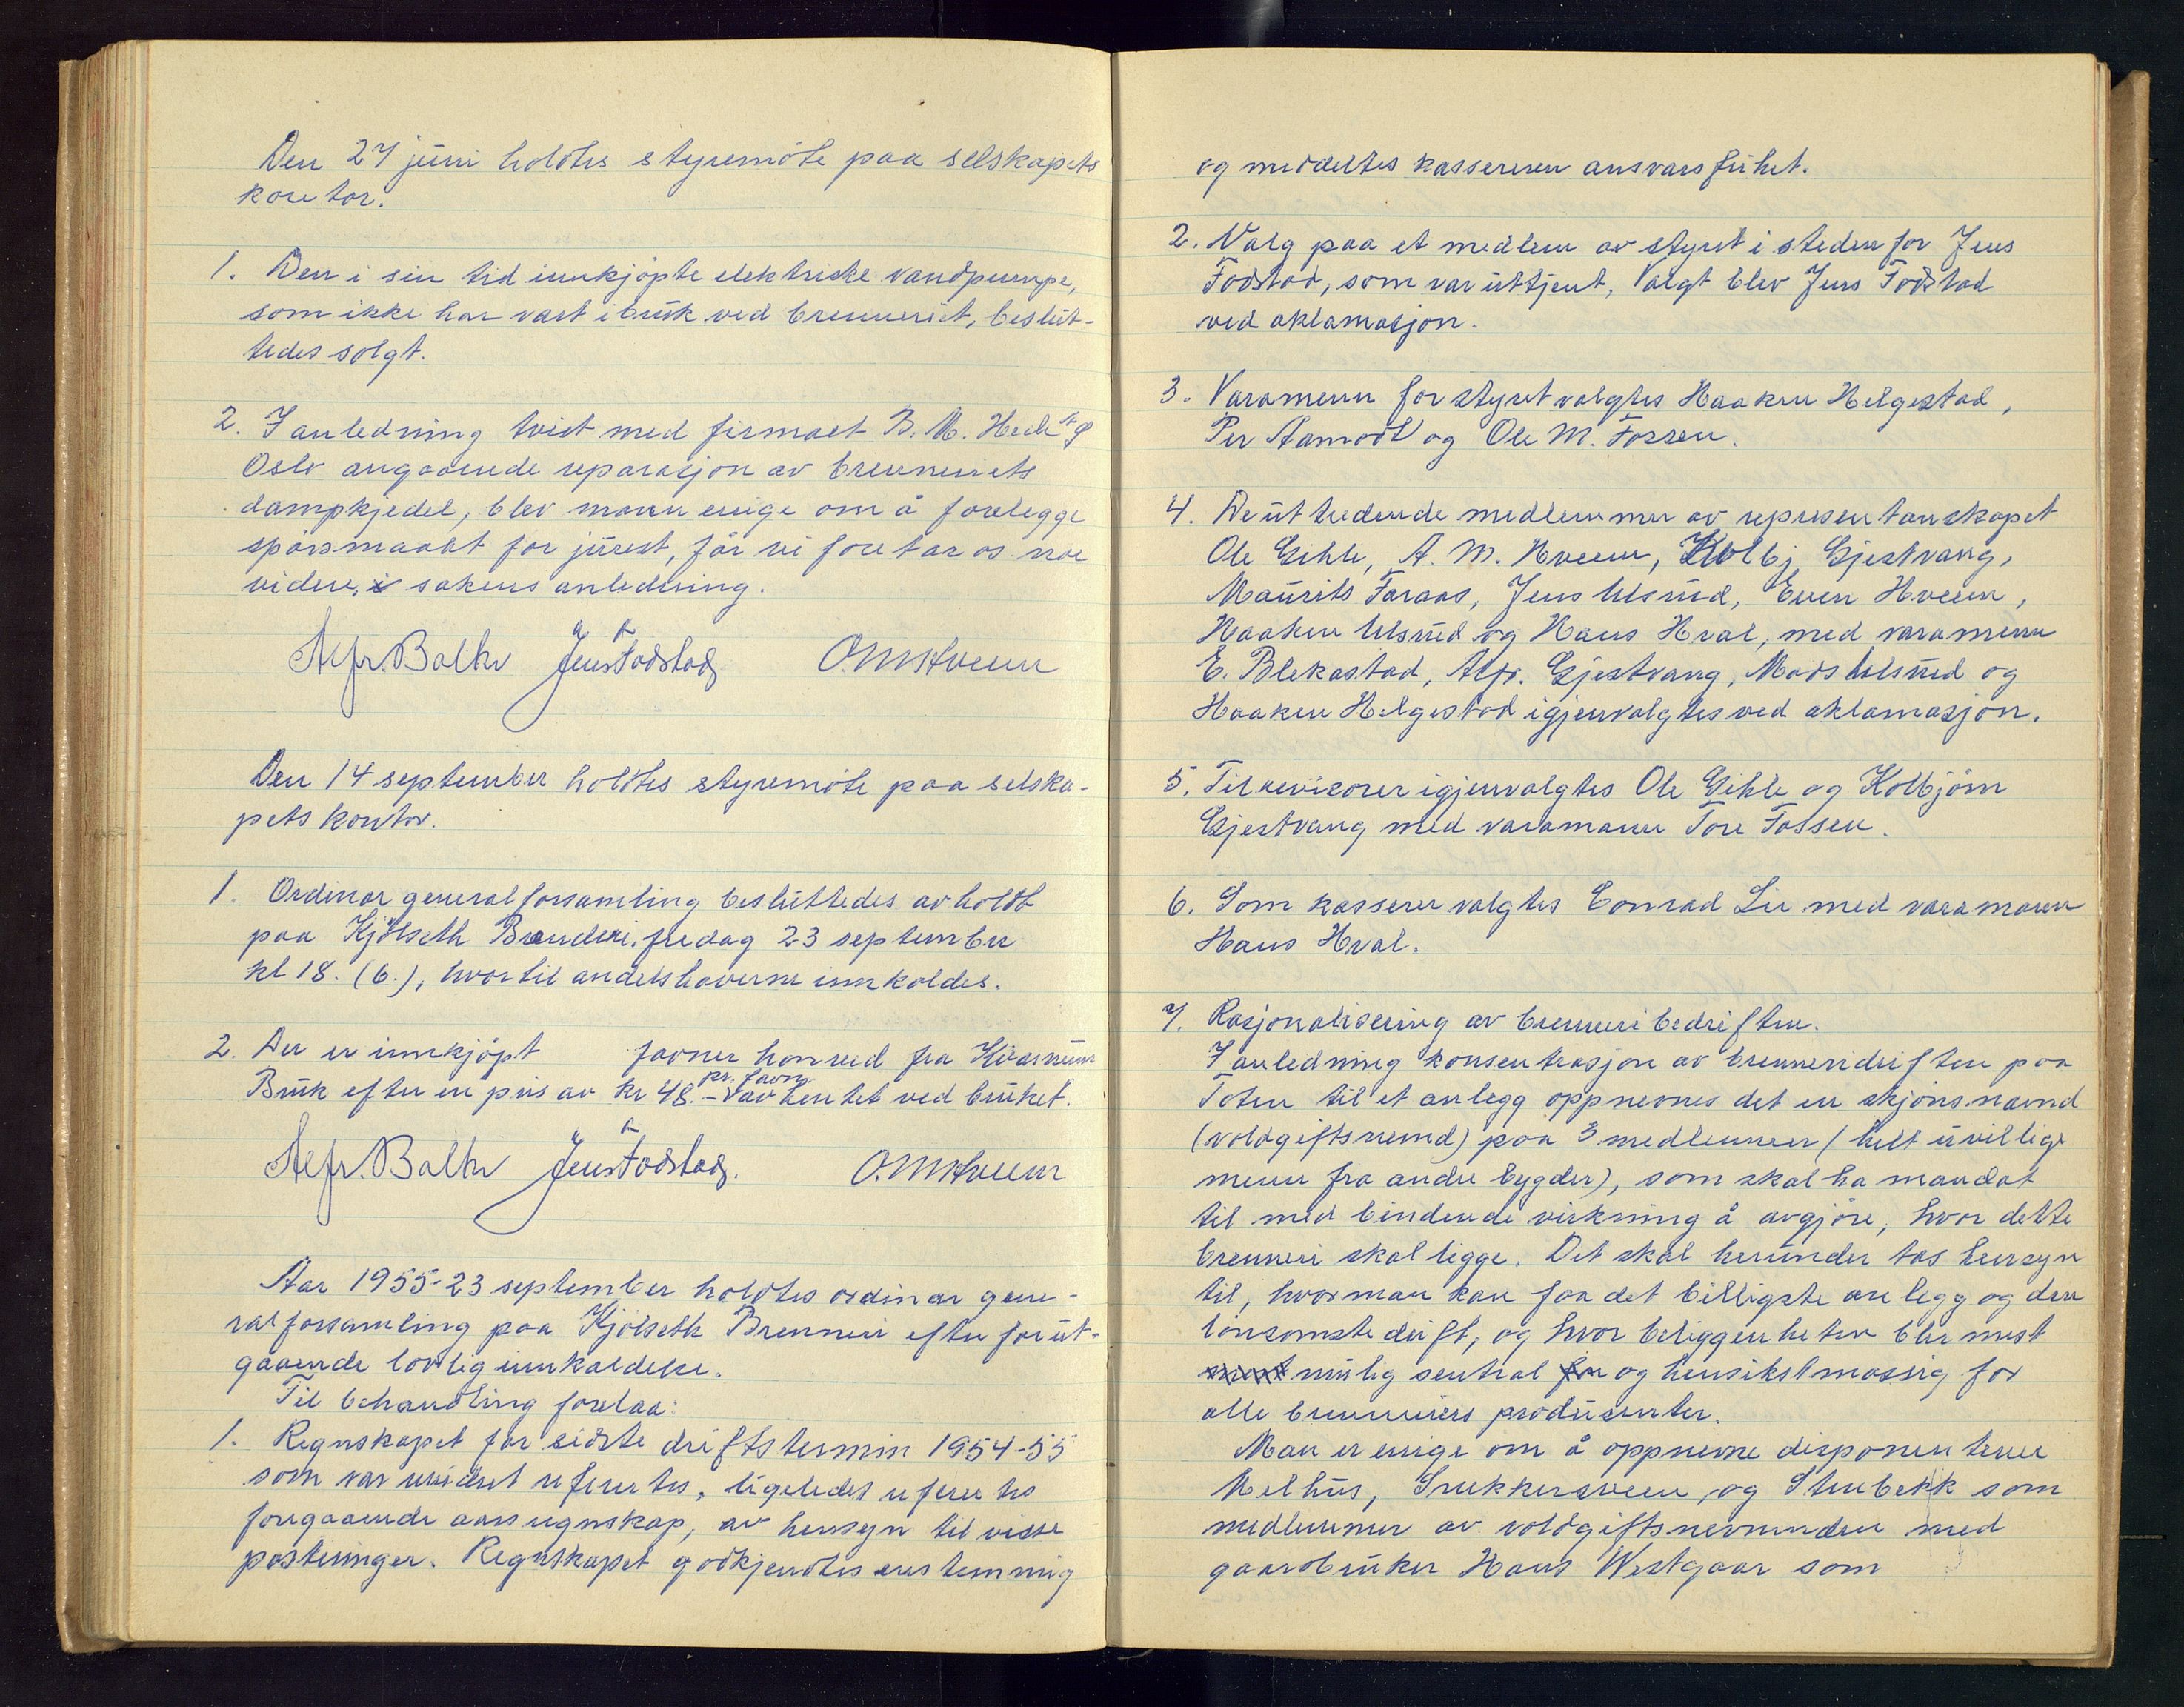 Den 27 juni holdtes styremöte paa selskapets
kontor.
1. Den i sin tid innkjöpte elektriske vandpumpe,
som ikke har vært i bruk ved brenneriet, beslut-
tedes solgt.
2. I anledning tvist med firmaet B. M.
Oslo angaaende reparasjon av brenneriets
dampkjedel, blev mann enige om å forelegge
spörsmaalet for jurist, för vi foretar os noe
videre, i sakens anledning.
Alfr. Balke Jens Fodstad O. M. Hveem
Den 14 september holdtes styremöte paa selska-
pets kontor.
1. Ordinær generalforsamling besluttedes avholdt
paa Kjölseth Brænderi fredag 23 september
kl 18. (6.), hvortil andelshaverne innkaldes.
2. Der er innkjöpt favner honved fra Kværnum
Bruk efter en pris av kr 48.- pr. favn av hentet ved bruket.
Alfr. Balke Jens Fodstad. O. M. Hveem
Aar 1955-23 september holdtes ordinær gene-
ralforsamling paa Kjölseth Brenneri efter forut-
gaaende lovlig innkaldelse.
Til behandling forelaa:
1. Regnskapet for sidste driftstermin 1954-55
som var revideret refertes, ligeledes refertes
foregaaende aarsregnskap, av hensyn til visse
posteringer. Regnskapet godkjendtes enstemmig
og meddeltes kassereren ansvarsfrihet.
2. Valg paa et medlem av styret i steden for Jens
Fodstad, som var uttjent, Valgt blev Jens Fodstad
ved aklamasjon.
3. Varamenn for styret valgtes Haaken Helgestad,
Per Aamodt og Ole M. Fossen.
4. De uttredende medlemmer av representanskapet
Ole Gihle, A. M. Hveem, Kolbj Gjestvang,
Maurits Faraas, Jens Ulsrud, Even Hveem,
Haaken Ulsrud og Hans Hval, med varamenn
E. Blekastad, Alfr. Gjestvang, Mads Ulsrud og
Haaken Helgestad igjenvalgtes ved aklamasjon.
5. Til revisorer igjenvalgtes Ole Gihle og Kolbjörn
Gjestvang med varamann Tore Fossen.
6. Som kasserer valgtes Conrad Lie med varamann
Hans Hval.
7. Rasjonalisering av brenneribedriften.
I anledning konsentrasjon av brenneridriften paa
Toten til et anlegg oppnevnes det en skjönsnævnd
(voldgiftsnevnd) paa 3 medlemmer (helt uvillige
menn fra andre bygder), som skal ha mandat
til med bindende virkning å avgjöre, hvor dette
brenneri skal ligge. Det skal herunder tas hensyn
til, hvor man kan faa det billigste anlegg og den
lönsomste drift, og hvor beliggenheten blir mest
mulig sentral og hensiktsmæssig for
alle brenneriers produsenter.
Man er enige om å oppnevne disponentene
Melhus, Snekkersveen, og Stenbekk som
medlemmer av voldgiftsnevnnden med
gaardbruker Hans Westgaar som